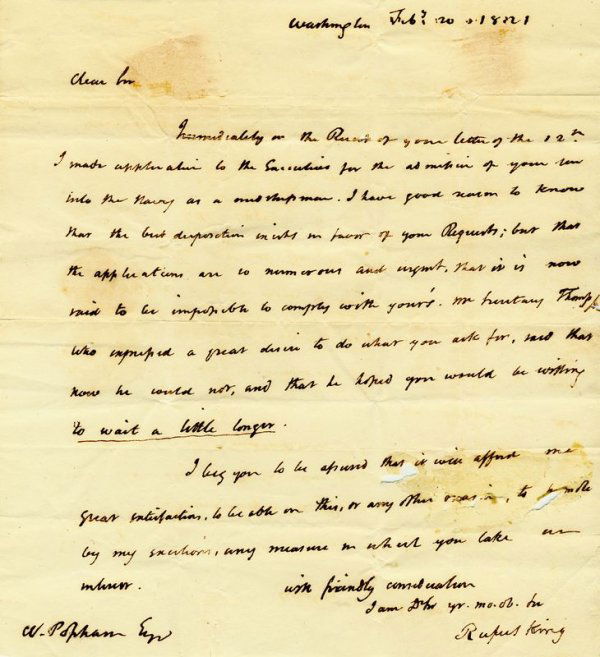 Washington Feb.y 20. 1821
Dear Sir
Immediately on the Receipt of your letter of the 12th
I made application to the Executive for the admission of your son
into the Navy as a midshipman. I have good reason to know
that the best disposition exists in favor of your Requests; but that
the applications are so numerous and urgent, that it is now
said to be impossible to comply with yours. Mr Secretary Thompson
who expressed a great desire to do what you ask for, said that
now he could not, and that he hoped you would be willing
to wait a little longer.
I beg you to be assured that it will afford me
great satisfaction, to be able on this, or any other occasion, to promote
by my exertions, any measure in which you take an
interest.
with friendly consideration
I am Dr Sir yr. mo. ob. Sr
Rufus King
W. Popham Esqr